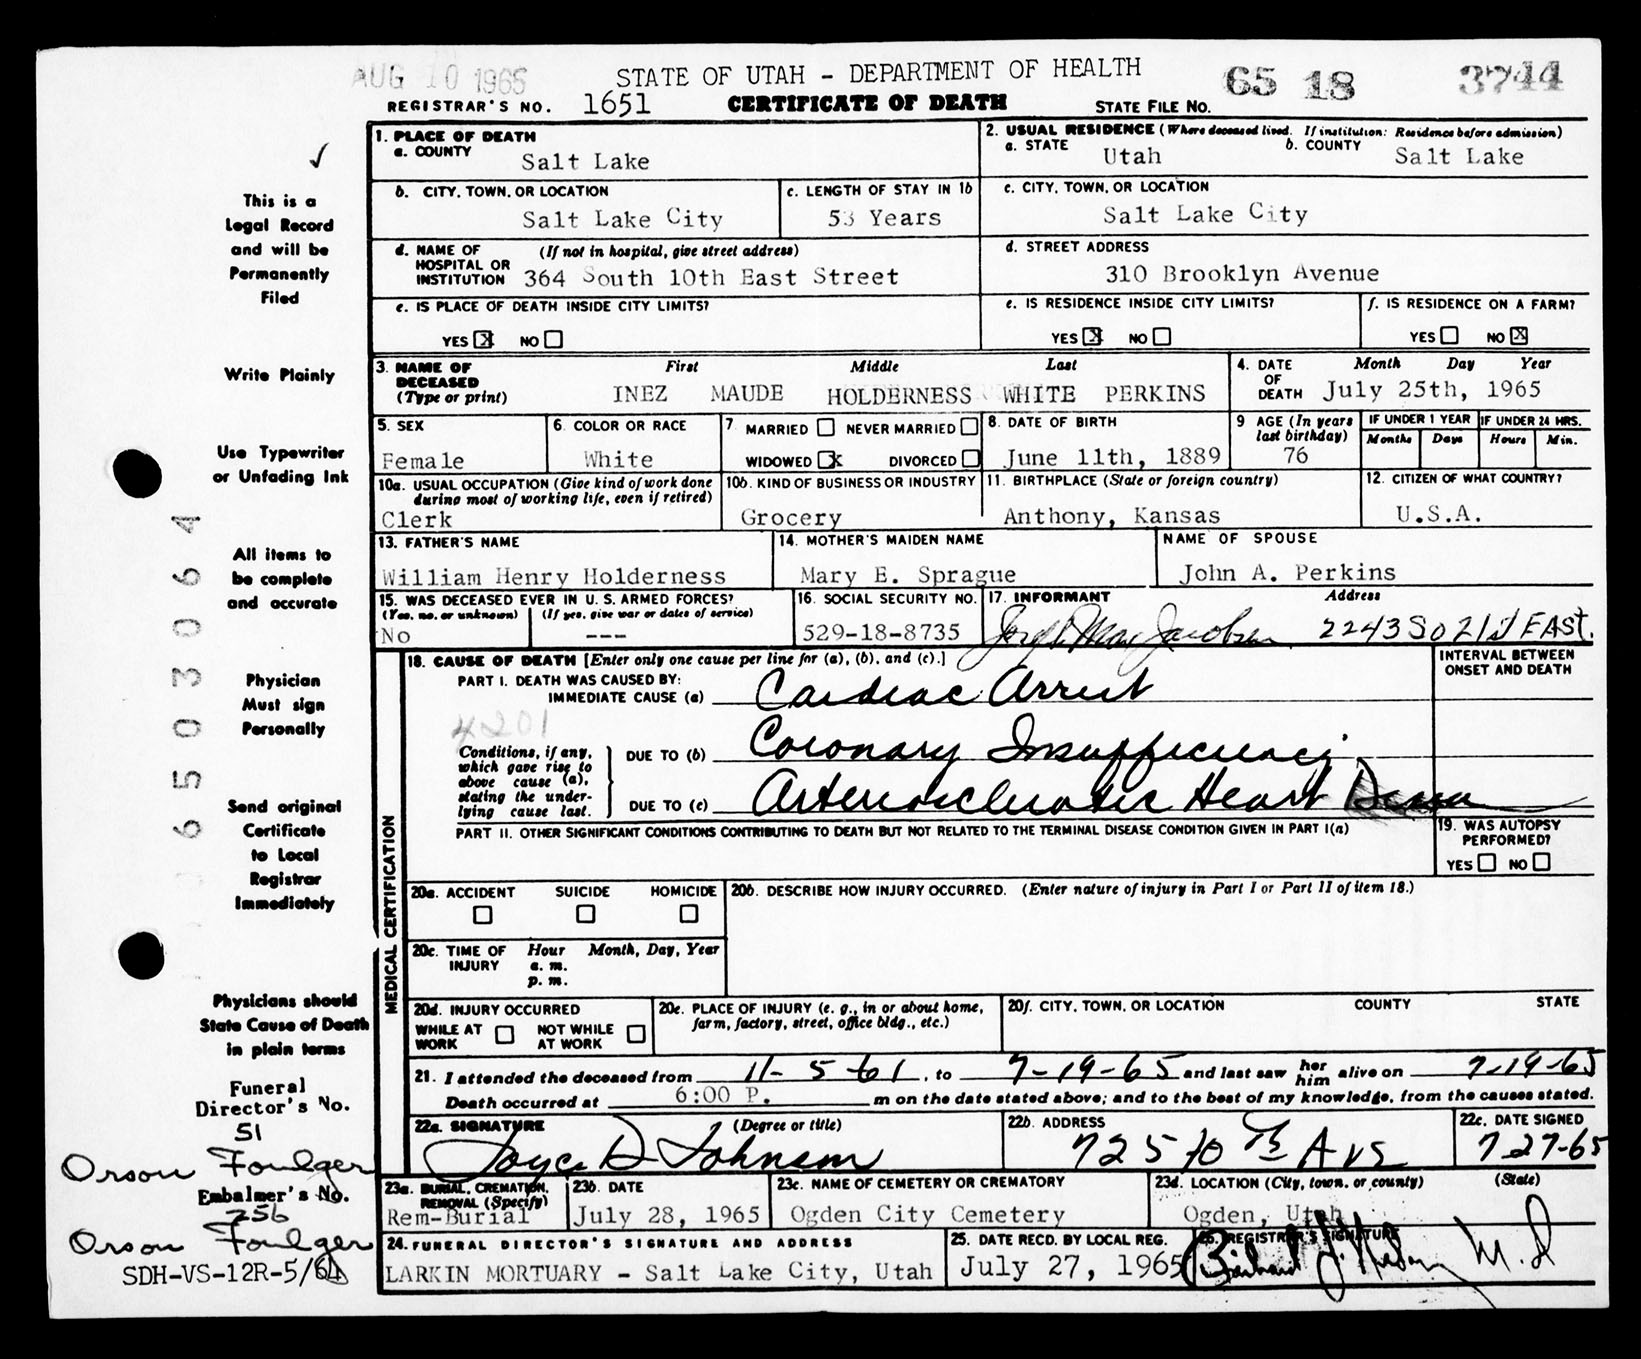 AUG 10 1965
STATE OF UTAH - DEPARTMENT OF HEALTH
65 18 3744
REGISTRAR'S NO. 1651 CERTIFICATE OF DEATH STATE FILE NO.
1. PLACE OF DEATH
a. COUNTY Salt Lake
2. USUAL RESIDENCE (Where deceased lived. If institution: Residence before admission)
a. STATE Utah b. COUNTY Salt Lake
b. CITY, TOWN, OR LOCATION Salt Lake City
c. LENGTH OF STAY IN 1b 53 Years
c. CITY, TOWN, OR LOCATION Salt Lake City
d. NAME OF HOSPITAL OR INSTITUTION (If not in hospital, give street address) 364 South 10th East Street
d. STREET ADDRESS 310 Brooklyn Avenue
e. IS PLACE OF DEATH INSIDE CITY LIMITS?
YES X NO
e. IS RESIDENCE INSIDE CITY LIMITS?
YES X NO
f. IS RESIDENCE ON A FARM?
YES NO X
3. NAME OF DECEASED (Type or print) First Middle Last
INEZ MAUDE HOLDERNESS WHITE PERKINS
4. DATE OF DEATH Month Day Year
July 25th, 1965
5. SEX Female
6. COLOR OR RACE White
7 MARRIED NEVER MARRIED
WIDOWED X DIVORCED
8. DATE OF BIRTH June 11th, 1889
9 AGE (In years last birthday) 76
IF UNDER 1 YEAR Months Days
IF UNDER 24 HRS. Hours Min.
10a. USUAL OCCUPATION (Give kind of work done during most of working life, even if retired)
Clerk
10b. KIND OF BUSINESS OR INDUSTRY
Grocery
11. BIRTHPLACE (State or foreign country)
Anthony, Kansas
12. CITIZEN OF WHAT COUNTRY?
U.S.A.
13. FATHER'S NAME
William Henry Holderness
14. MOTHER'S MAIDEN NAME
Mary E. Sprague
NAME OF SPOUSE
John A. Perkins
15. WAS DECEASED EVER IN U. S. ARMED FORCES?
(Yes, no, or unknown) (If yes, give war or dates of service)
No ---
16. SOCIAL SECURITY NO.
529-18-8735
17. INFORMANT Address
Jacobsen 2243 So 21st EAST.
MEDICAL CERTIFICATION
18. CAUSE OF DEATH [Enter only one cause per line for (a), (b), and (c).]
INTERVAL BETWEEN ONSET AND DEATH
PART I. DEATH WAS CAUSED BY:
IMMEDIATE CAUSE (a) Cardiac Arrest
4201
Conditions, if any, which gave rise to above cause (a), stating the underlying cause last.
DUE TO (b) Coronary Insufficiency
DUE TO (c) Arteriosclerotic Heart Disease
PART II. OTHER SIGNIFICANT CONDITIONS CONTRIBUTING TO DEATH BUT NOT RELATED TO THE TERMINAL DISEASE CONDITION GIVEN IN PART I(a)
19. WAS AUTOPSY PERFORMED?
YES NO
20a. ACCIDENT SUICIDE HOMICIDE
20b. DESCRIBE HOW INJURY OCCURRED. (Enter nature of injury in Part I or Part II of item 18.)
20c. TIME OF INJURY Hour Month, Day, Year
a. m.
p. m.
20d. INJURY OCCURRED
WHILE AT WORK NOT WHILE AT WORK
20e. PLACE OF INJURY (e. g., in or about home, farm, factory, street, office bldg., etc.)
20f. CITY, TOWN, OR LOCATION COUNTY STATE
21. I attended the deceased from 11-5-61, to 7-19-65 and last saw her him alive on 7-19-65
Death occurred at 6:00 P. m on the date stated above; and to the best of my knowledge, from the causes stated.
22a. SIGNATURE (Degree or title)
Joyce D Johnson
22b. ADDRESS
725 10th Ave
22c. DATE SIGNED
7-27-65
23a. BURIAL, CREMATION, REMOVAL (Specify)
Rem-Burial
23b. DATE
July 28, 1965
23c. NAME OF CEMETERY OR CREMATORY
Ogden City Cemetery
23d. LOCATION (City, town, or county) (State)
Ogden, Utah
24. FUNERAL DIRECTOR'S SIGNATURE AND ADDRESS
LARKIN MORTUARY - Salt Lake City, Utah
25. DATE RECD. BY LOCAL REG.
July 27, 1965
26. REGISTRAR'S SIGNATURE
M.D
This is a
Legal Record
and will be
Permanently
Filed
Write Plainly
Use Typewriter
or Unfading Ink
All items to
be complete
and accurate
Physician
Must sign
Personally
Send original
Certificate
to Local
Registrar
Immediately
Physicians should
State Cause of Death
in plain terms
Funeral
Director's No.
51
Orson Foulger
Embalmer's No.
256
Orson Foulger
SDH-VS-12R-5/61
65 03064